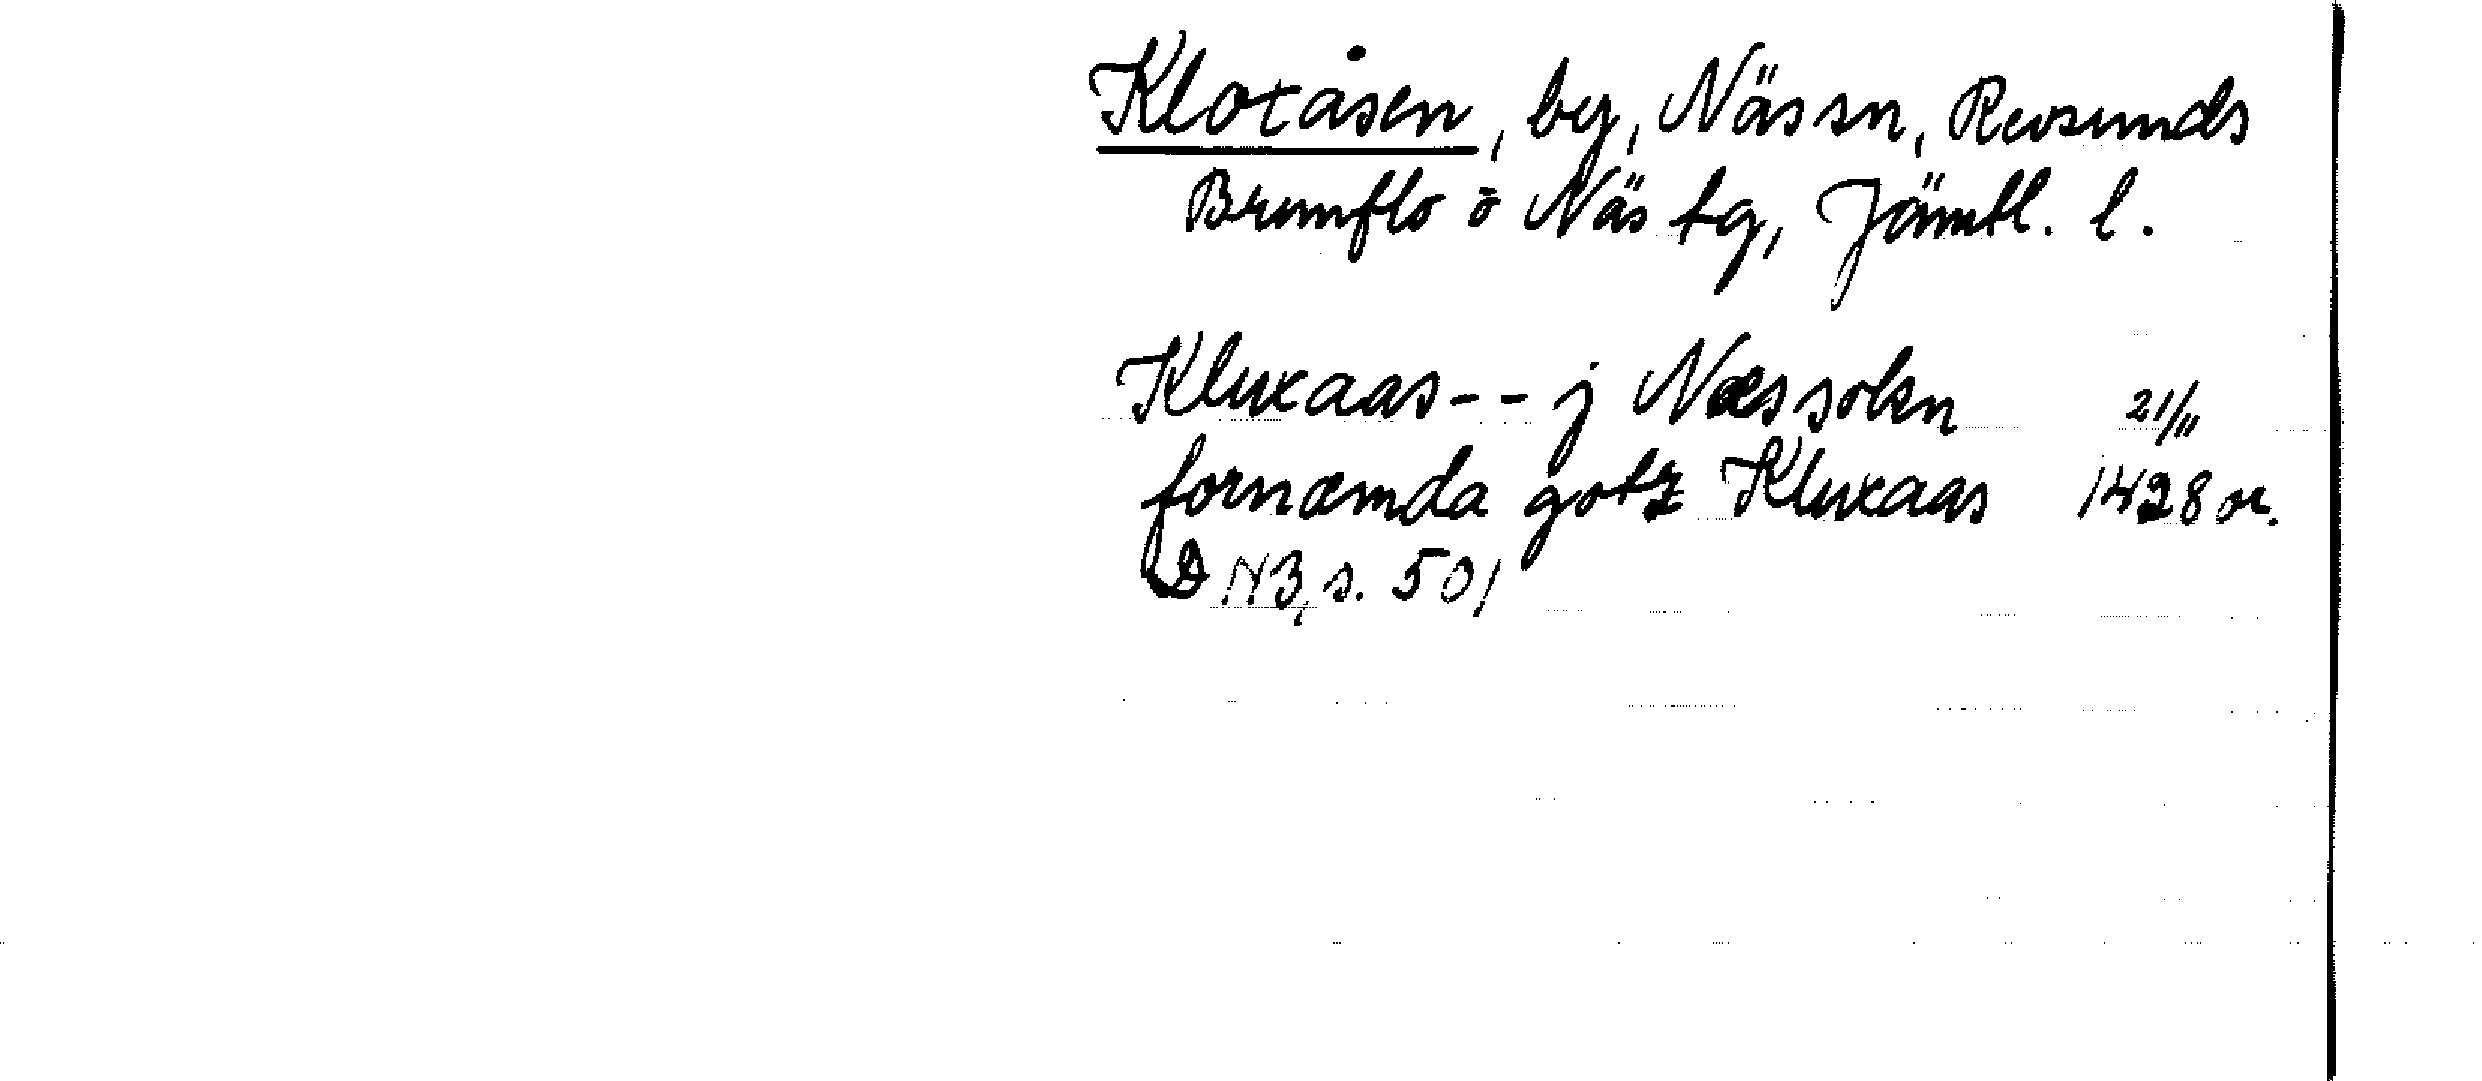 Kloxåsen, by, Näs sn, Revsunds
Brunflo o Näs tg, Jämtl. l.
Kluxaas -- j Næs sokn 21/11
fornæmda gotz Kluxaas 1428 or.
DN 3, s. 501